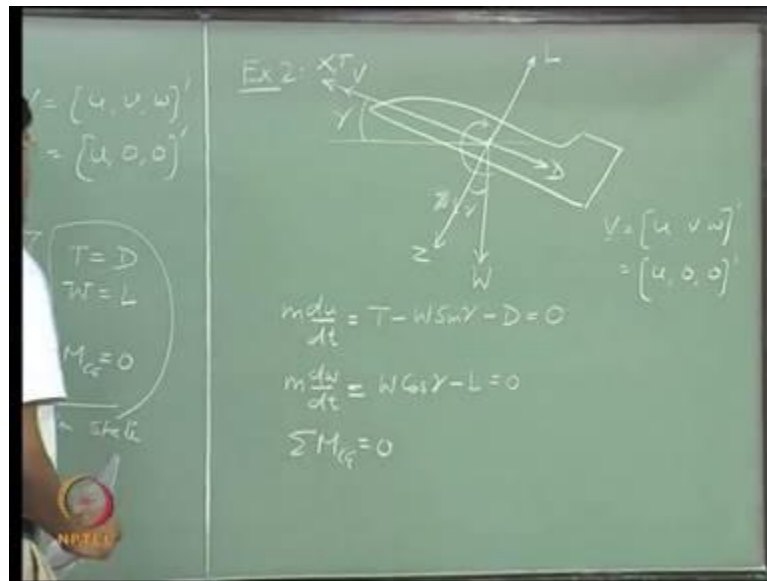 V = [u, v, w]'
= [u, 0, 0]'
T = D
W = L
M_CG = 0
state
Ex 2: X T V
L
γ
D
γ
Z
W
V = [u v w]'
= [u, 0, 0]'
m du/dt = T - W Sin γ - D = 0
m dw/dt = W Cos γ - L = 0
Σ M_CG = 0
NPTEL